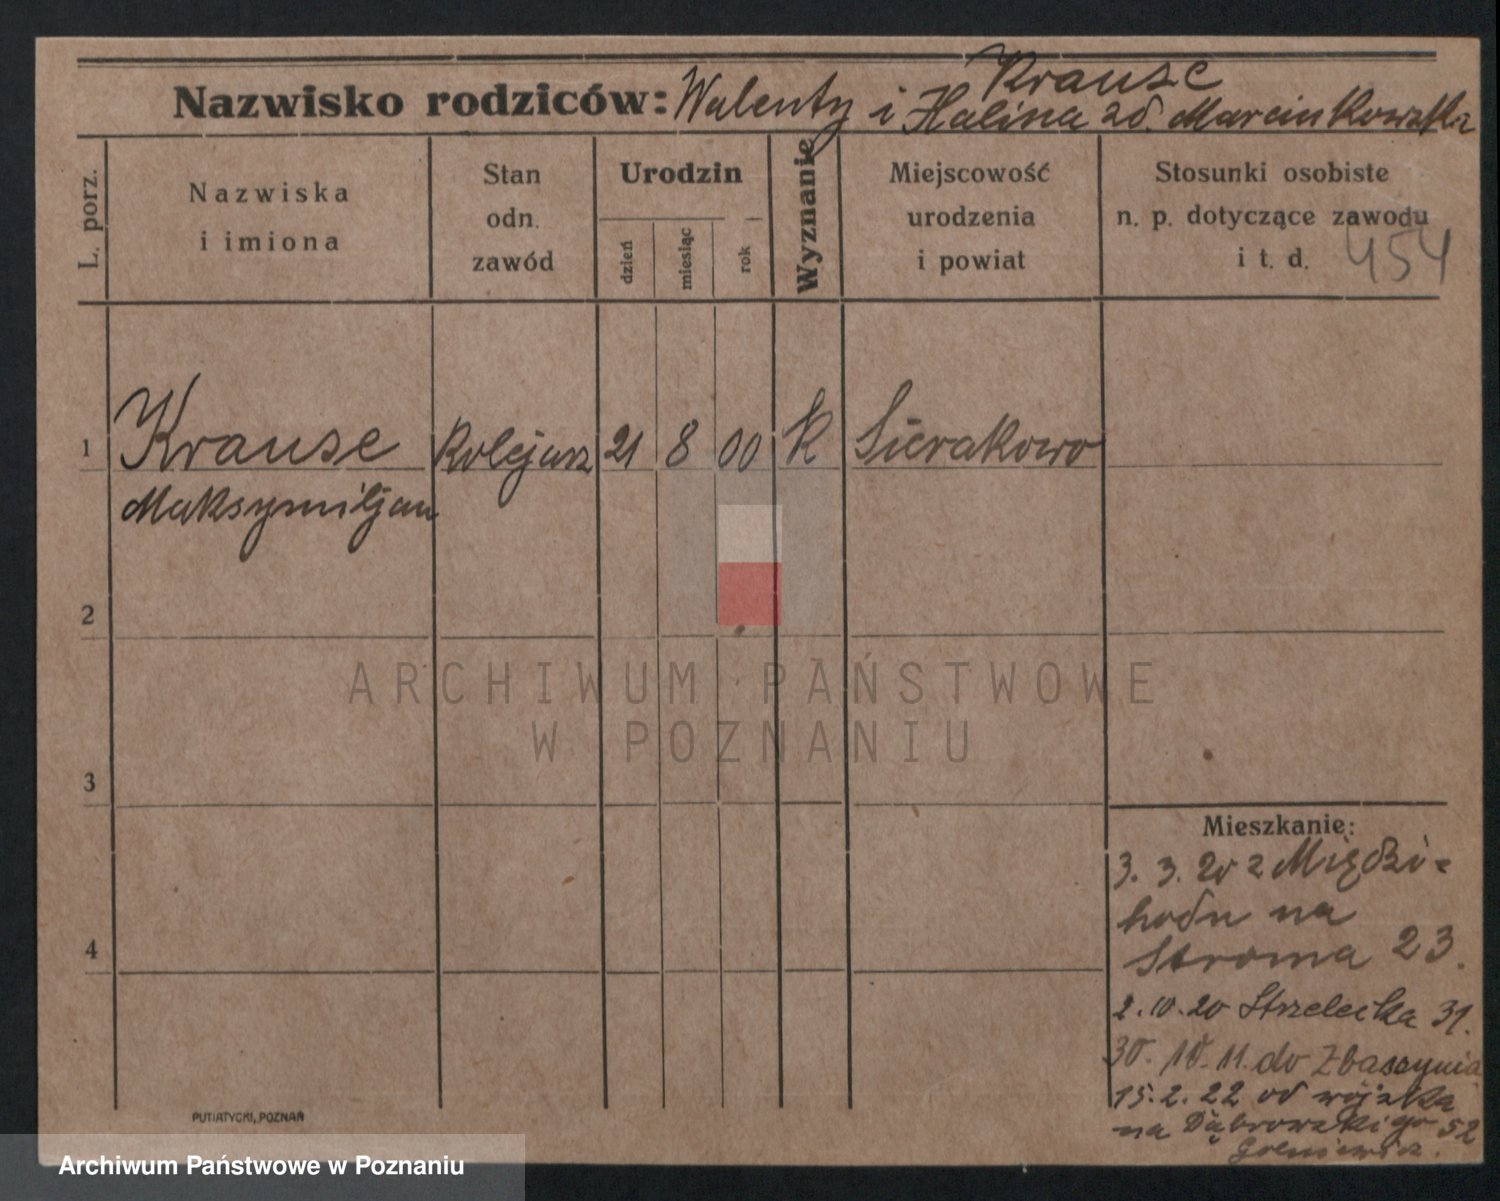 Krause
Nazwisko rodziców: Walenty i Halina zd. Marcinkowska
L. porz.
Nazwiska
i imiona
Stan
odn.
zawód
Urodzin
dzień
miesiąc
rok
Wyznanie
Miejscowość
urodzenia
i powiat
Stosunki osobiste
n. p. dotyczące zawodu
i t. d.
454
1 Krause Kolejarz 21 8 00 K Sierakowo
Maksymiljan
2
3
4
Mieszkanie:
3. 3. 20 z Międzi-
hodu na
Stroma 23.
2.10.20 Strzelecka 31.
30. 10. 11. do Zbaszynia
15.2.22 od wojska
na Dąbrowskiego 52
PUTIATYCKI, POZNAŃ
ARCHIWUM PAŃSTWOWE
W POZNANIU
Archiwum Państwowe w Poznaniu